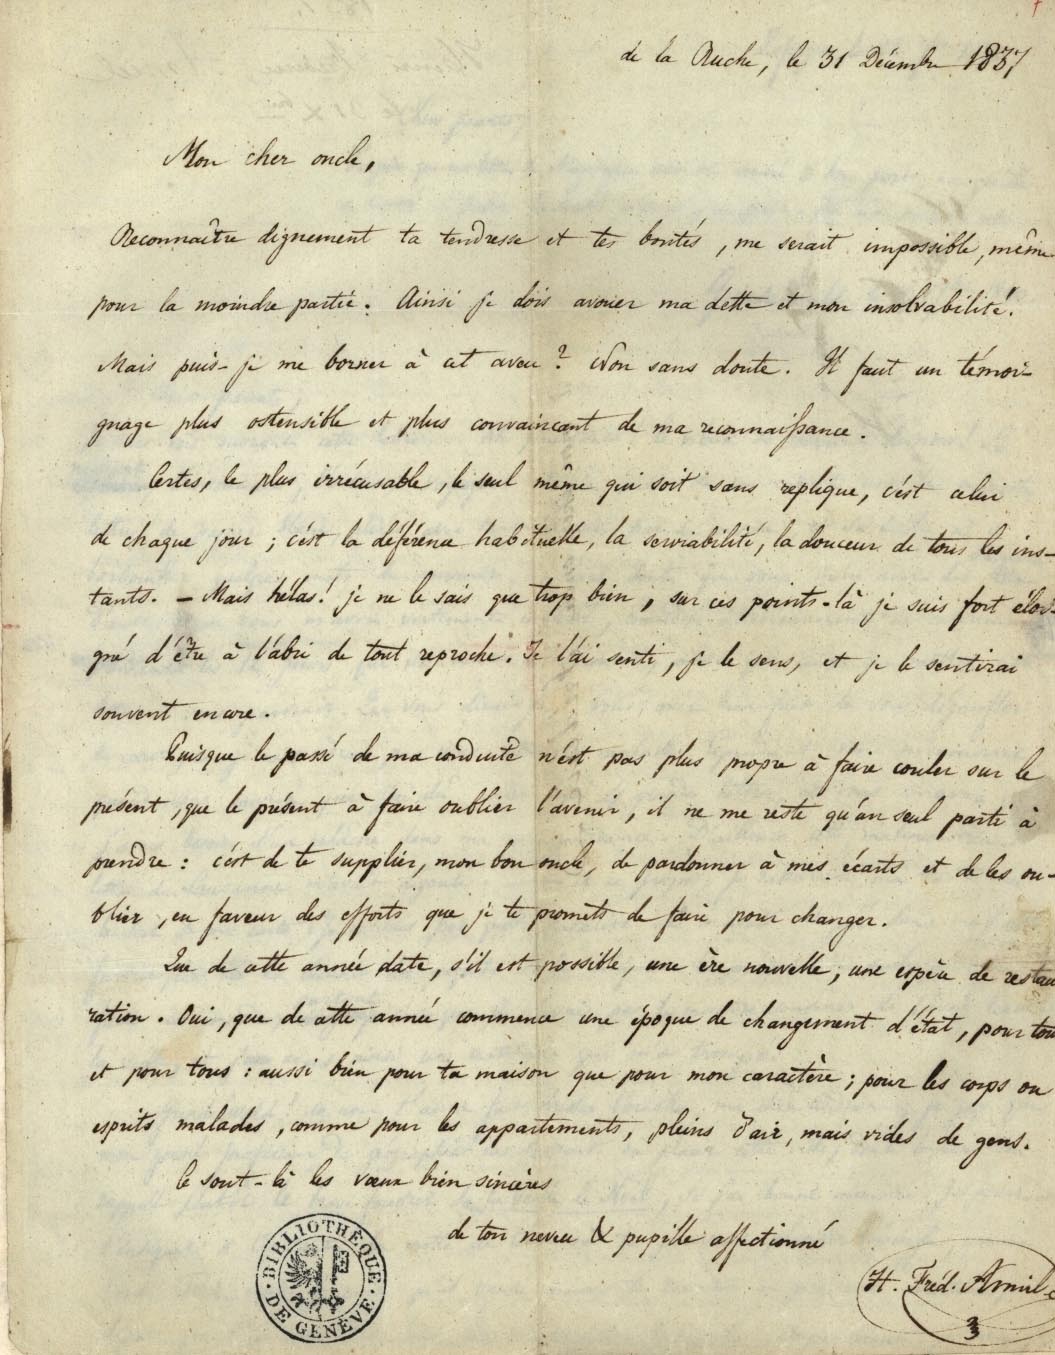 de la Ruche, le 31 Décembre 1837
Mon cher oncle,
Reconnaître dignement ta tendresse et tes bontés, me serait impossible, même
pour la moindre partie. Ainsi je dois avouer ma dette et mon insolvabilité!
Mais puis-je me borner à cet aveu? Non sans doute. Il faut un témoi-
gnage plus ostensible et plus convaincant de ma reconnaissance.
Certes, le plus irrécusable, le seul même qui soit sans replique, c'est celui
de chaque jour; c'est la déférence habituelle, la serviabilité, la douceur de tous les ins-
tants. - Mais hélas! je ne le sais que trop bien, sur ces points-là je suis fort éloi-
gné d'être à l'abri de tout reproche. Je l'ai senti, je le sens, et je le sentirai
souvent encore.
Puisque le passé de ma conduite n'est pas plus propre à faire couler sur le
présent, que le présent à faire oublier l'avenir, il ne me reste qu'un seul parti à
prendre: c'est de te supplier, mon bon oncle, de pardonner à mes écarts et de les ou-
blier, en faveur des efforts que je te promets de faire pour changer.
Que de cette année date, s'il est possible, une ère nouvelle, une espèce de restau
ration. Oui, que de cette année commence une époque de changement d'état, pour tou
et pour tous: aussi bien pour ta maison que pour mon caractère; pour les corps ou
esprits malades, comme pour les appartements, pleins d'air, mais vides de gens.
Ce sont-là les vœux bien sincères
de ton neveu & pupille affectionné
H. Fréd. Amiel
BIBLIOTHÈQUE
DE GENÈVE